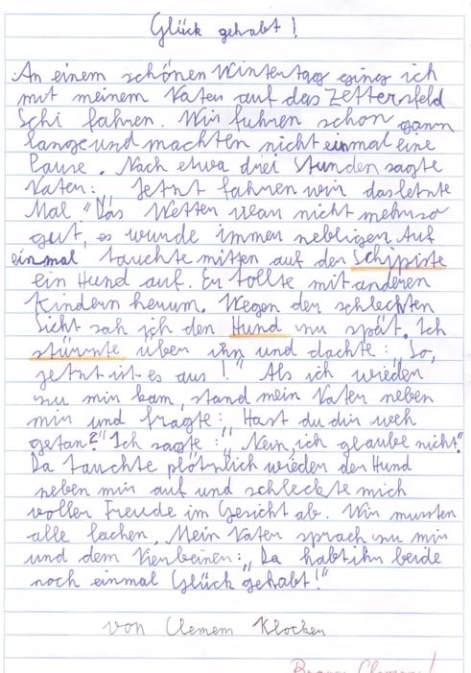 Glück gehabt!
An einem schönen Wintertag ging ich
mit meinem Vater auf das Zettersfeld
Schi fahren. Wir fuhren schon ganz
lange und machten nicht einmal eine
Pause. Nach etwa drei Stunden sagte
Vater: "Jetzt fahren wir das letzte
Mal" Das Wetter war nicht mehr so
gut, es wurde immer nebliger. Auf
einmal tauchte mitten auf der Schipiste
ein Hund auf. Er tollte mit anderen
Kindern herum. Wegen der schlechten
Sicht sah ich den Hund zu spät. Ich
stürzte über ihn und dachte: "So,
jetzt ist es aus!" Als ich wieder
zu mir kam, stand mein Vater neben
mir und fragte: "Hast du dir weh
getan?" Ich sagte: "Nein, ich glaube nicht."
Da tauchte plötzlich wieder der Hund
neben mir auf und schleckte mich
voller Freude im Gesicht ab. Wir mussten
alle lachen. Mein Vater sprach zu mir
und dem Vierbeiner: "Da habt ihr beide
noch einmal Glück gehabt!"
von Clemem Klocker